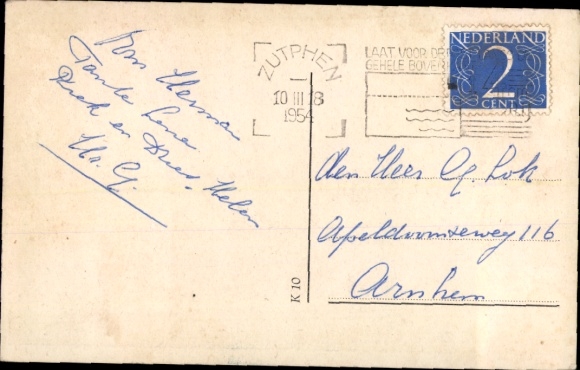 Oom Herman
Tante Lena
Riek en Dries, Helen
ZUTPHEN
10 III 18
1954
LAAT VOOR
GEHELE BOVEN
NEDERLAND
2
CENT
den Heer G. Lok
Apeldoornseweg 116
Arnhem
K 10